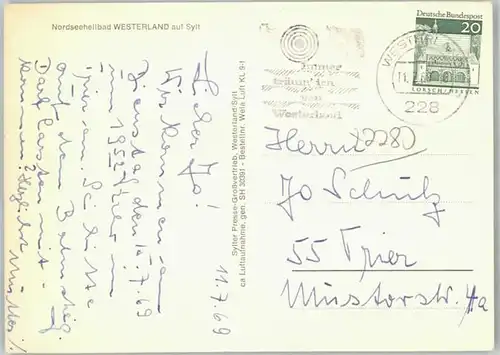 Nordseeheilbad WESTERLAND auf Sylt
11.7.69
Lieber Jo!
Wir kommen am
Dienstag, den 15.7.69
um 1952 Uhr in
Trier an. Sei bitte
auf dem Bahnsteig.
Darf Carsten mit-
kommen? Herzlichst Mutter!
Sylter Presse-Großvertrieb, Westerland/Sylt
ca Luftaufnahme, gen. SH 30391 - Bestellnr. Wela Luft KL 9-1
Immer
träumt ich
von
Westerland
WESTERLA
11.7.6
228
Deutsche Bundespost
20
LORSCH/HESSEN
Herrn
2280
Jo Schulz
55 Trier
Mustorstr. 4a